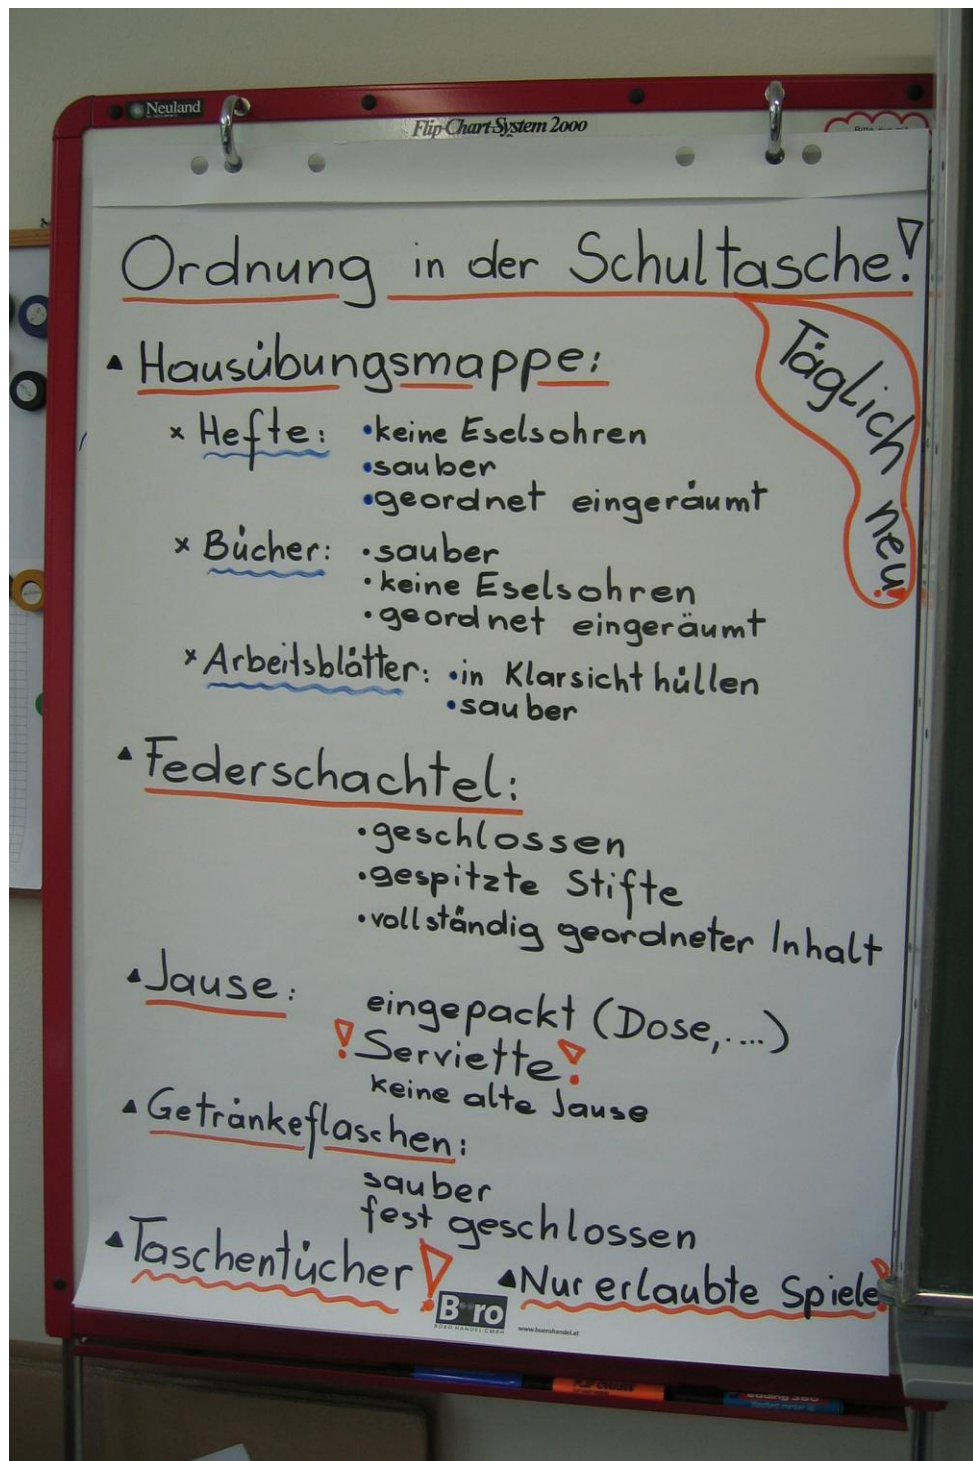 Neuland
Flip-Chart-System 2000
Ordnung in der Schultasche!
Täglich neu!
▲ Hausübungsmappe:
x Hefte: • keine Eselsohren
• sauber
• geordnet eingeräumt
x Bücher: • sauber
• keine Eselsohren
• geordnet eingeräumt
x Arbeitsblätter: • in Klarsichthüllen
• sauber
▲ Federschachtel:
• geschlossen
• gespitzte Stifte
• vollständig geordneter Inhalt
▲ Jause:
eingepackt (Dose,....)
! Serviette!
keine alte Jause
▲ Getränkeflaschen:
sauber
fest geschlossen
▲ Taschentücher! ▲ Nur erlaubte Spiele!
Büro
BÜRO HANDEL GMBH www.buerohandel.at
edding 380